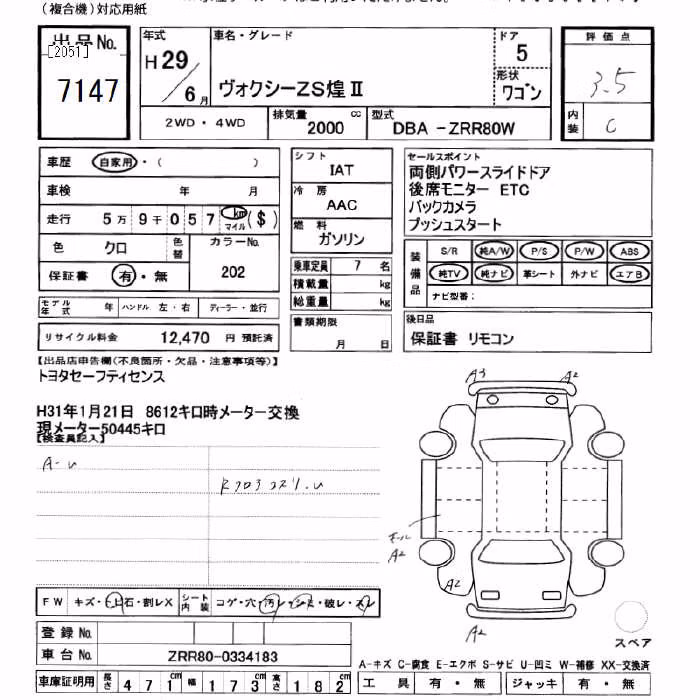 (複合機)対応用紙
出品No.
[2051]
7147
年式
H29/6月
車名・グレード
ヴォクシーZS煌Ⅱ
ドア
5
形状
ワゴン
評価点
3.5
内装
C
2WD・4WD
排気量
2000 cc
型式
DBA -ZRR80W
車歴 自家用・( )
車検 年 月
走行 5万9千057 km マイル ($)
色 クロ 色替
カラーNo.
202
保証書 有・無
モデル年式 年 ハンドル 左・右 ディーラー・並行
リサイクル料金 12,470 円 預託済
シフト
IAT
冷房
AAC
燃料
ガソリン
乗車定員 7 名
積載量 kg
総重量 kg
書類期限
月 日
セールスポイント
両側パワースライドドア
後席モニター ETC
バックカメラ
プッシュスタート
装備品
S/R 純A/W P/S P/W ABS
純TV 純ナビ 革シート 外ナビ エアB
ナビ型番:
後日品
保証書 リモコン
【出品店申告欄(不良箇所・欠品・注意事項等)】
トヨタセーフティセンス
H31年1月21日 8612キロ時メーター交換
現メーター50445キロ
【検査員記入】
A-U
A3
A2
モール
A2
A2
A2
スペア
FW キズ・トビ石・割レX シート内装 コゲ・穴・汚レ・シミ・破レ・スレ
登録No.
車台No. ZRR80-0334183
A-キズ C-腐食 E-エクボ S-サビ U-凹ミ W-補修 XX-交換済
車庫証明用 長さ 471cm 幅 173cm 高さ 182cm
工具 有・無 ジャッキ 有・無